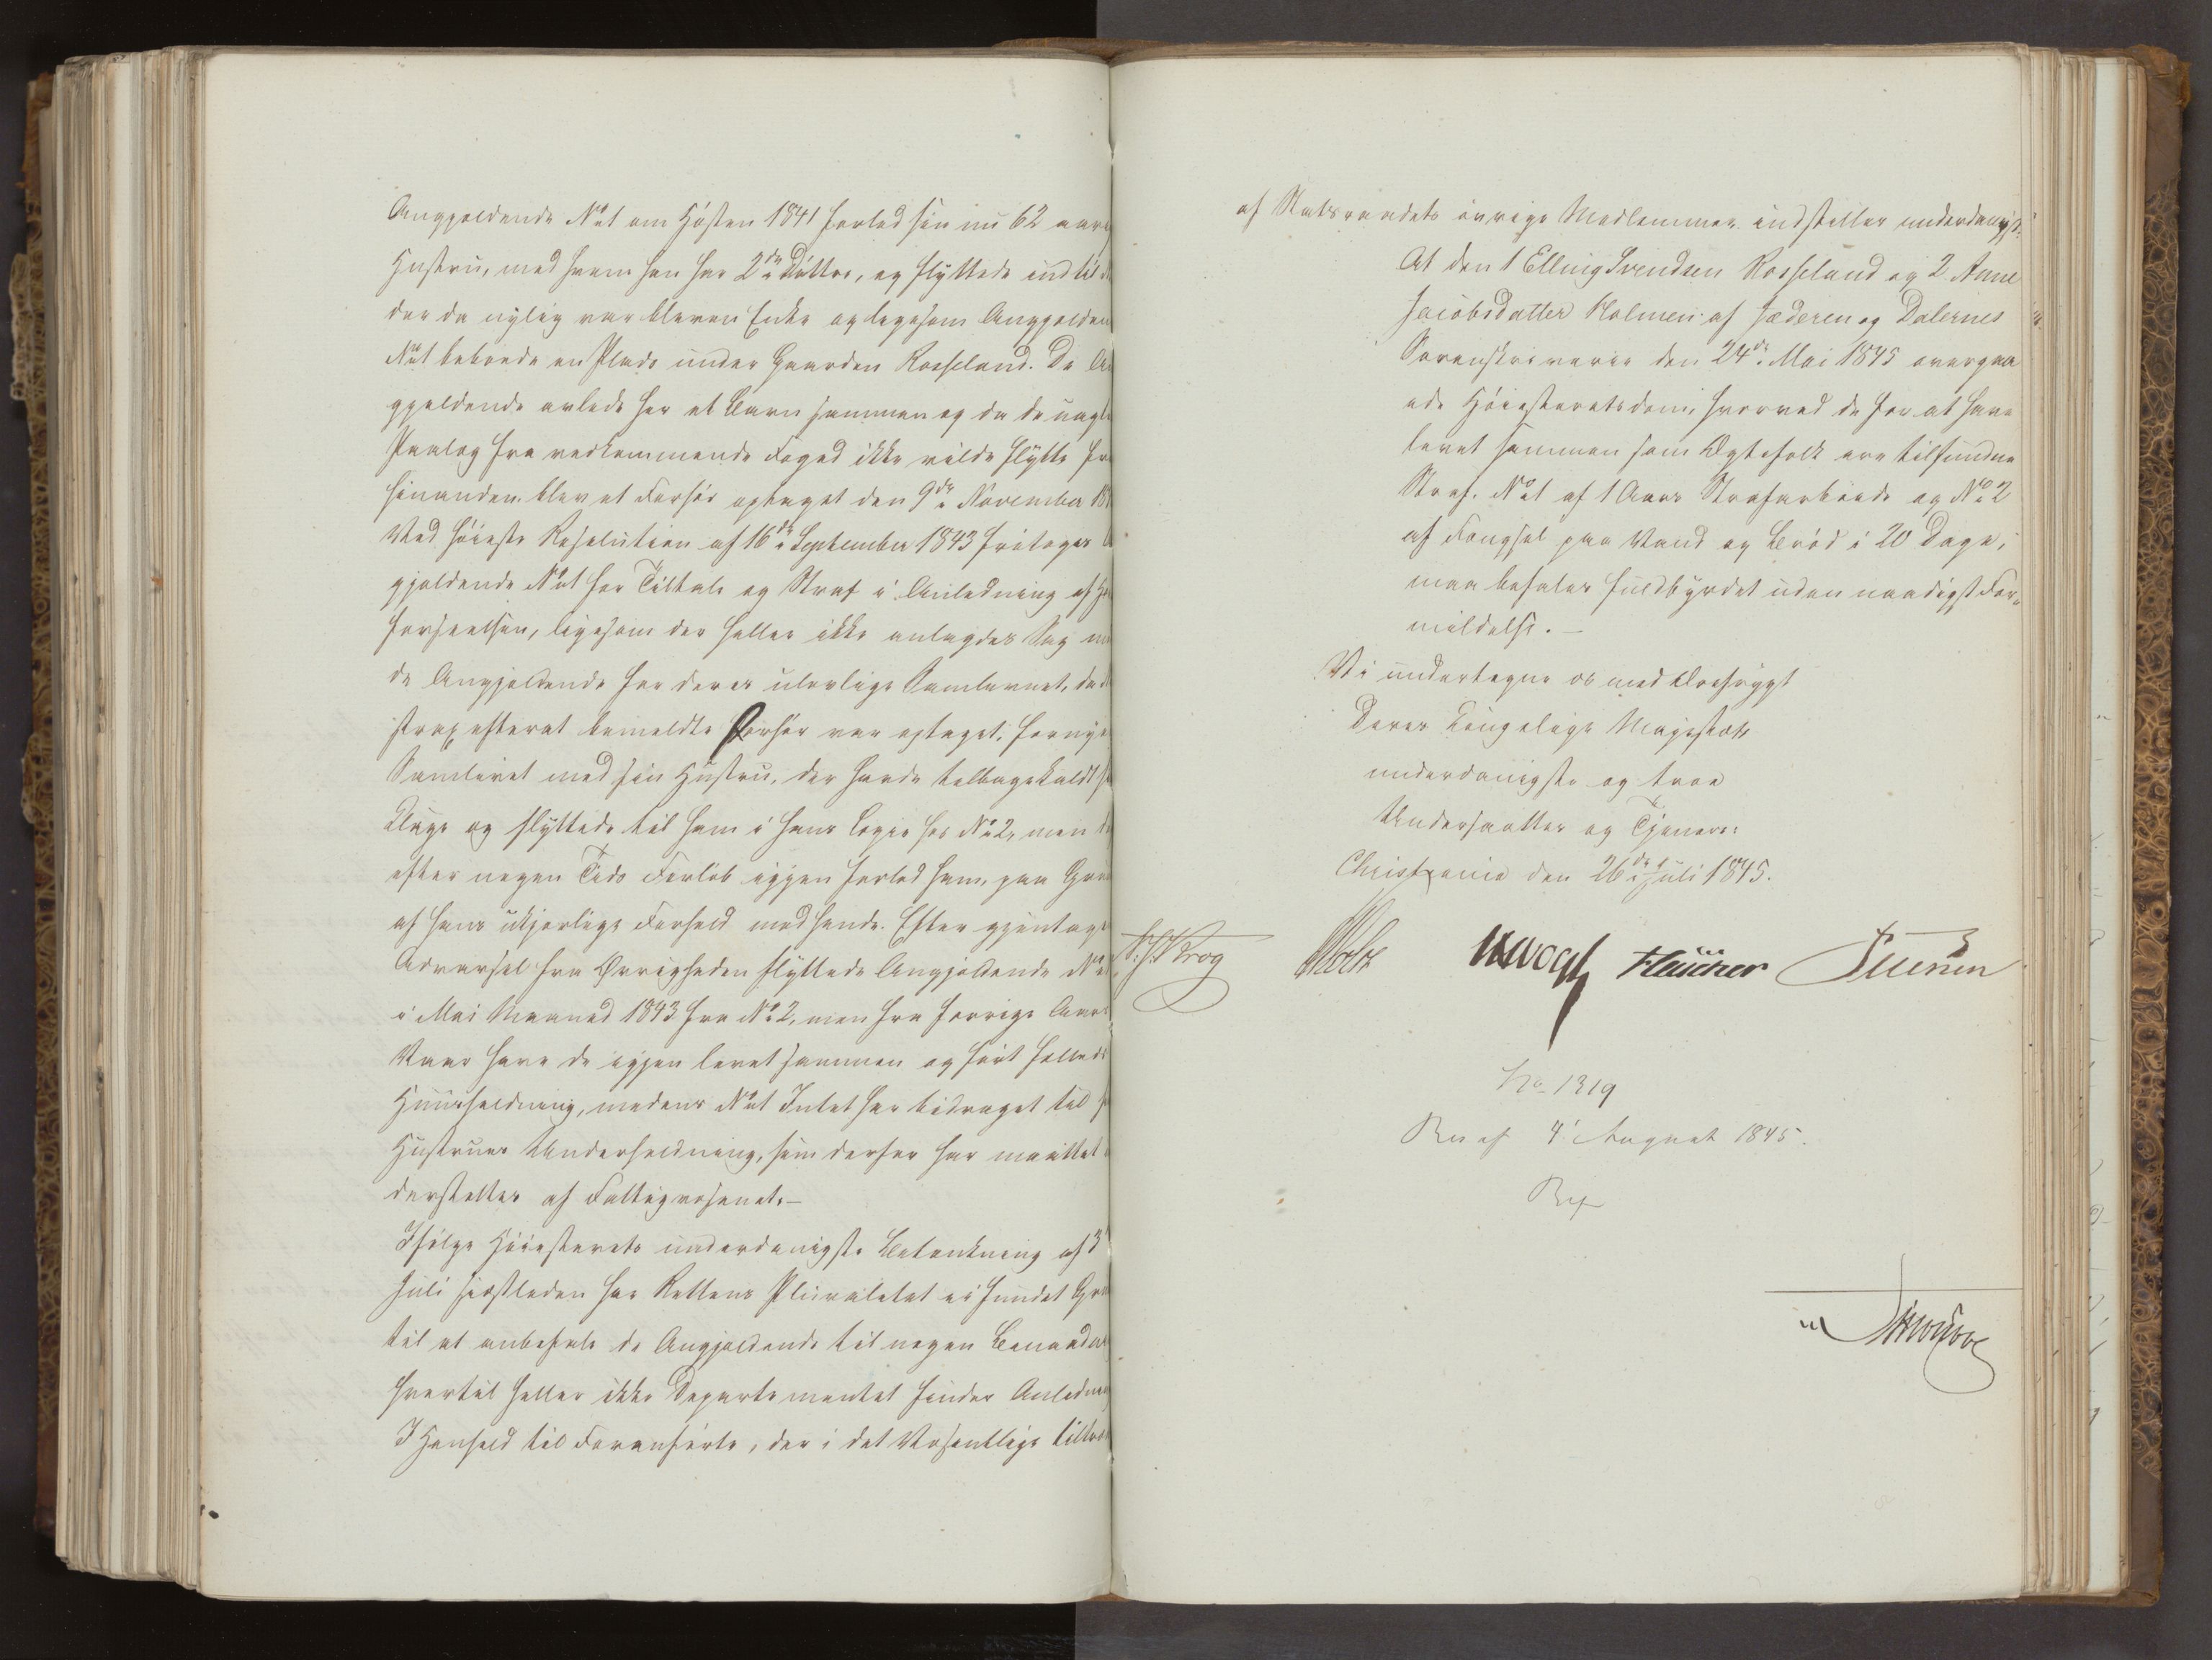 Angjældende No 1 om Høsten 1841 forlod sin nu 62 aarig
Hustru, med hvem han har 2de Døttre, og flyttede ind til
der da nylig var bleven Enke og ligesom Angjælden
No 1 beboede en Plads under Gaarden Rosseland. De A
gjældende avlede her et Barn sammen og da de uagt
Paalæg fra vedkommende Foged ikke vilde flytte fra
hinanden blev et Forhør optaget den 9de November 18
Ved høieste Resolution af 16de September 1843 fritoges
gjældende No 1 for Tiltale og Straf i Anledning af
forseelsen, ligesom der heller ikke anlagdes Sag
de Angjældende for deres ulovlige Samlevnet, da
strax efterat bemeldte Forhør var optaget, fornye
Samlivet med sin Hustru, der havde tilbagekaldt
Klage og flyttede til ham i hans Logie hos No 2, men
efter nogen Tids Forløb igjen forlod ham, paa Grund
af hans ukjærlige Forhold mod hende. Efter gjentagne
Advarsel fra Øvrigheden flyttede Angjældende No 1
i Mai Maaned 1843 fra No 2, men fra forrige Aars
Vaar have de igjen levet sammen og ført fælleds
Huusholdning, medens No 1 Intet har bidraget til
Hustrues Underholdning, som derfor har maattet
derstøttes af Fattigvæsenet.-
Ifølge Høiesterets underdanigste Betænkning af 3
Juli sidstleden har Rettens Pluralitet ei fundet Grund
til at anbefale de Angjældende til nogen Benaadn
hvortil heller ikke Departementet finder Anledning
I Henhold til Foranførte, der i det Væsentlige tiltræd
af Statsraadets øvrige Medlemmer indstilles underdanigst:
At den 1 Elling Svendsen Rosseland og 2. Anne
Jacobsdatter Holmen af Jæderen og Dalernes
Sorenskriverie den 24de Mai 1845 overgaa
ede Høiesteretsdom, hvorved de for at have
levet sammen som Ægtefolk ere tilfundne
Straf. No 1 af 1 Aars Strafarbeide og No 2
af Fængsel paa Vand og Brød i 20 Dage,
maa befales fuldbyrdet uden naadigst For-
mildelse.-
Vi undertegne os med Ærefrygt
Deres Kongelige Majestæts
underdanigste og troe
Undersaatter og Tjenere:
Christiania den 26de Juli 1845.
Krog Vogt
No 1319
Res af 4 August 1845.